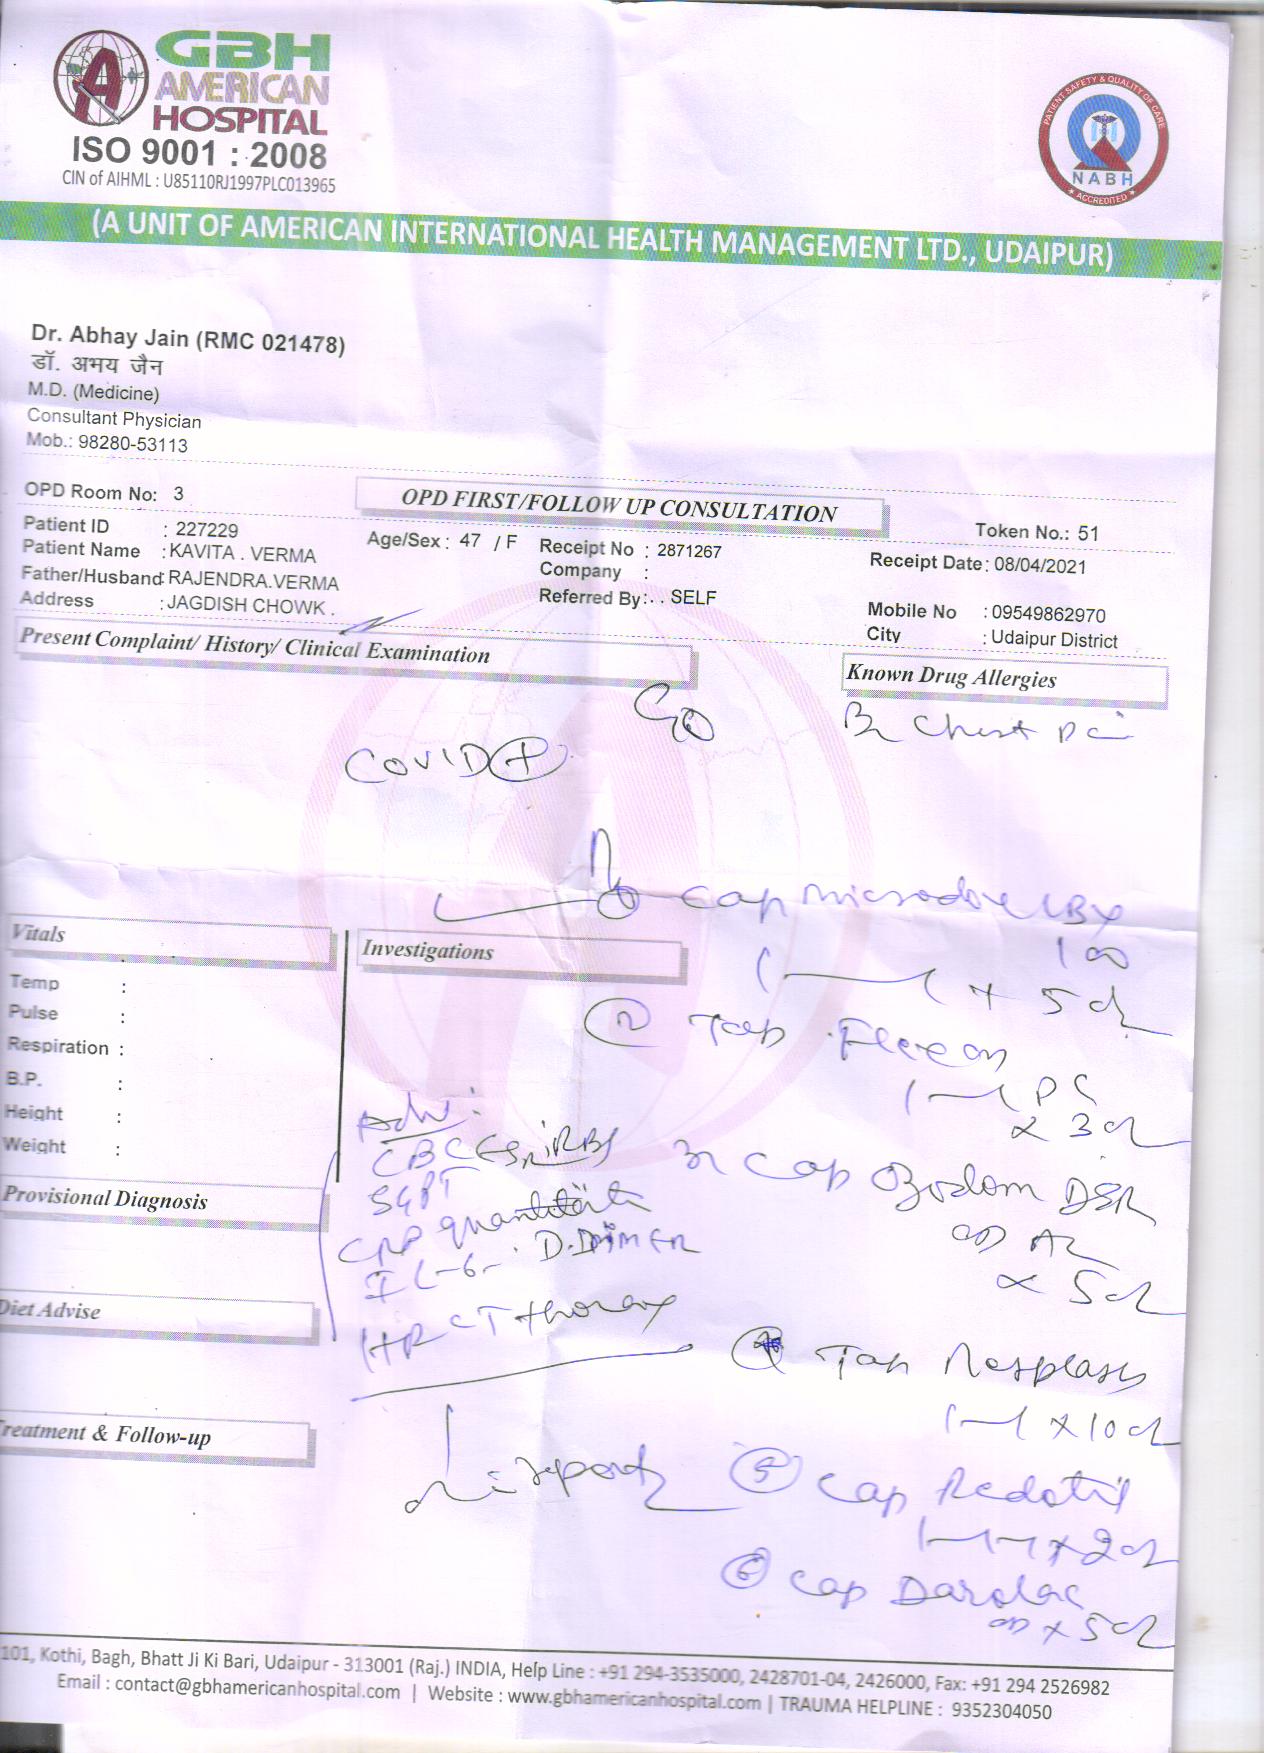 GBH
AMERICAN
HOSPITAL
ISO 9001 : 2008
CIN of AIHML : U85110RJ1997PLC013965
PATIENT SAFETY & QUALITY OF CARE
NABH
ACCREDITED
(A UNIT OF AMERICAN INTERNATIONAL HEALTH MANAGEMENT LTD., UDAIPUR)
Dr. Abhay Jain (RMC 021478)
डॉ. अभय जैन
M.D. (Medicine)
Consultant Physician
Mob.: 98280-53113
OPD Room No: 3
OPD FIRST/FOLLOW UP CONSULTATION
Token No.: 51
Patient ID : 227229
Age/Sex : 47 / F
Receipt No : 2871267
Receipt Date: 08/04/2021
Patient Name : KAVITA . VERMA
Company :
Father/Husband: RAJENDRA.VERMA
Referred By: . . SELF
Mobile No : 09549862970
Address : JAGDISH CHOWK .
City : Udaipur District
Present Complaint/ History/ Clinical Examination
Known Drug Allergies
Chest
COVID +
Cap Microdox LBX
100
+ 5 d
Vitals
Investigations
Temp :
Pulse :
Respiration :
B.P. :
Height :
Weight :
2 Tab Flexon
PC
x 3 d
Adv:
CBC ESR RBS
SGPT
CRP quantitative
IL-6 - D.DIMER
HRCT thorax
3 Cap Ozodom DSR
OD AC
x 5 d
Provisional Diagnosis
Diet Advise
4 Tab
1-1 x 10 d
Treatment & Follow-up
reports
5 Cap Redotil
1-1-1 x 2 d
6 Cap Darolac
OD x 5 d
101, Kothi, Bagh, Bhatt Ji Ki Bari, Udaipur - 313001 (Raj.) INDIA, Help Line : +91 294-3535000, 2428701-04, 2426000, Fax: +91 294 2526982
Email : contact@gbhamericanhospital.com | Website : www.gbhamericanhospital.com | TRAUMA HELPLINE : 9352304050